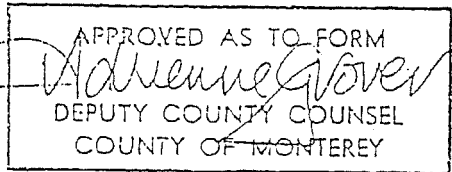 APPROVED AS TO FORM
Adrienne Grover
DEPUTY COUNTY COUNSEL
COUNTY OF MONTEREY